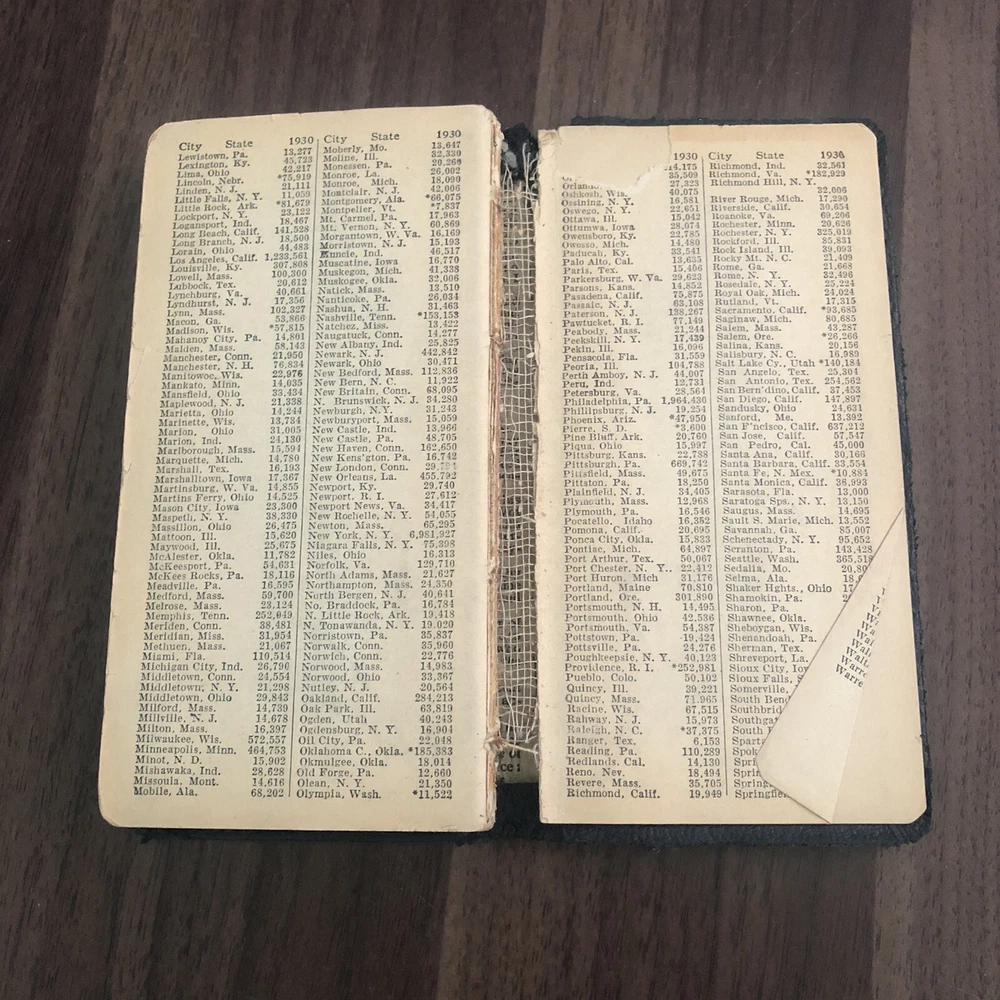 City State 1930
Lewistown, Pa. 13,277
Lexington, Ky. 45,723
Lima, Ohio 42,217
Lincoln, Nebr. *75,919
Linden, N. J. 21,111
Little Falls, N. Y. 11,059
Little Rock, Ark. *81,679
Lockport, N. Y. 23,122
Logansport, Ind. 18,467
Long Beach, Calif. 141,528
Long Branch, N. J. 18,500
Lorain, Ohio 44,483
Los Angeles, Calif. 1,233,561
Louisville, Ky. 307,808
Lowell, Mass. 100,300
Lubbock, Tex. 20,612
Lynchburg, Va. 40,661
Lyndhurst, N. J. 17,356
Lynn, Mass. 102,327
Macon, Ga. 53,866
Madison, Wis. *57,815
Mahanoy City, Pa. 14,801
Malden, Mass. 58,143
Manchester, Conn. 21,950
Manchester, N. H. 76,834
Manitowoc, Wis. 22,976
Mankato, Minn. 14,035
Mansfield, Ohio 33,434
Maplewood, N. J. 21,338
Marietta, Ohio 14,244
Marinette, Wis. 13,734
Marion, Ohio 31,005
Marion, Ind. 24,130
Marlborough, Mass. 15,594
Marquette, Mich. 14,780
Marshall, Tex. 16,193
Marshalltown, Iowa 17,367
Martinsburg, W. Va. 14,855
Martins Ferry, Ohio 14,525
Mason City, Iowa 23,300
Maspeth, N. Y. 38,330
Massillon, Ohio 26,475
Mattoon, Ill. 15,620
Maywood, Ill. 25,675
McAlester, Okla. 11,782
McKeesport, Pa. 54,631
McKees Rocks, Pa. 18,116
Meadville, Pa. 16,595
Medford, Mass. 59,700
Melrose, Mass. 23,124
Memphis, Tenn. 252,049
Meriden, Conn. 38,481
Meridian, Miss. 31,954
Methuen, Mass. 21,067
Miami, Fla. 110,514
Michigan City, Ind. 26,790
Middletown, Conn. 24,554
Middletown, N. Y. 21,298
Middletown, Ohio 29,843
Milford, Mass. 14,739
Millville, N. J. 14,678
Milton, Mass. 16,397
Milwaukee, Wis. 572,557
Minneapolis, Minn. 464,753
Minot, N. D. 15,902
Mishawaka, Ind. 28,628
Missoula, Mont. 14,616
Mobile, Ala. 68,202
City State 1930
Moberly, Mo. 13,647
Moline, Ill. 32,330
Monessen, Pa. 20,260
Monroe, La. 26,002
Monroe, Mich. 18,090
Montclair, N. J. 42,006
Montgomery, Ala. *66,075
Montpelier, Vt. *7,837
Mt. Carmel, Pa. 17,963
Mt. Vernon, N. Y. 60,869
Morgantown, W. Va. 16,169
Morristown, N. J. 15,193
Muncie, Ind. 46,517
Muscatine, Iowa 16,770
Muskegon, Mich. 41,338
Muskogee, Okla. 32,006
Natick, Mass. 13,510
Nanticoke, Pa. 26,034
Nashua, N. H. 31,463
Nashville, Tenn. *153,153
Natchez, Miss. 13,422
Naugatuck, Conn. 14,277
New Albany, Ind. 25,825
Newark, N. J. 442,842
Newark, Ohio 30,471
New Bedford, Mass. 112,836
New Bern, N. C. 11,922
New Britain, Conn. 68,095
N. Brunswick, N. J. 34,280
Newburgh, N.Y. 31,243
Newburyport, Mass. 15,059
New Castle, Ind. 13,966
New Castle, Pa. 48,705
New Haven, Conn. 162,650
New Kens'gton, Pa. 16,742
New London, Conn.
New Orleans, La. 455,792
Newport, Ky. 29,740
Newport, R. I. 27,612
Newport News, Va. 34,417
New Rochelle, N. Y. 54,055
Newton, Mass. 65,295
New York, N. Y. 6,981,927
Niagara Falls, N. Y. 75,398
Niles, Ohio 16,313
Norfolk, Va. 129,710
North Adams, Mass. 21,627
Northampton, Mass. 24,350
North Bergen, N. J. 40,641
No. Braddock, Pa. 16,784
N. Little Rock, Ark. 19,418
N. Tonawanda, N. Y. 19,020
Norristown, Pa. 35,837
Norwalk, Conn. 35,960
Norwich, Conn. 22,776
Norwood, Mass. 14,983
Norwood, Ohio 33,367
Nutley, N. J. 20,564
Oakland, Calif. 284,213
Oak Park, Ill. 63,819
Ogden, Utah 40,243
Ogdensburg, N. Y. 16,904
Oil City, Pa. 22,048
Oklahoma C., Okla. *185,383
Okmulgee, Okla. 18,014
Old Forge, Pa. 12,660
Olean, N. Y. 21,350
Olympia, Wash. *11,522
1930
14,175
35,509
Orlando, 27,323
Oshkosh, Wis. 40,075
Ossining, N. Y. 16,581
Oswego, N. Y. 22,651
Ottawa, Ill. 15,042
Ottumwa, Iowa 28,074
Owensboro, Ky. 22,785
Owosso, Mich. 14,480
Paducah, Ky. 33,541
Palo Alto, Cal. 13,635
Paris, Tex. 15,406
Parkersburg, W. Va. 29,623
Parsons, Kans. 14,852
Pasadena, Calif. 75,875
Passaic, N. J. 63,108
Paterson, N. J. 138,267
Pawtucket, R. I. 77,149
Peabody, Mass. 21,244
Peekskill, N. Y. 17,439
Pekin, Ill. 16,096
Pensacola, Fla. 31,559
Peoria, Ill. 104,788
Perth Amboy, N. J. 44,007
Peru, Ind. 12,731
Petersburg, Va. 28,564
Philadelphia, Pa. 1,964,430
Phillipsburg, N. J. 19,254
Phoenix, Ariz. *47,950
Pierre, S. D. *3,600
Pine Bluff, Ark. 20,760
Piqua, Ohio 15,997
Pittsburg, Kans. 22,788
Pittsburgh, Pa. 669,742
Pittsfield, Mass. 49,675
Pittston, Pa. 18,250
Plainfield, N. J. 34,405
Plymouth, Mass. 12,968
Plymouth, Pa. 16,546
Pocatello, Idaho 16,352
Pomona, Calif. 20,695
Ponca City, Okla. 15,833
Pontiac, Mich. 64,897
Port Arthur, Tex. 50,067
Port Chester, N. Y. 22,412
Port Huron, Mich 31,176
Portland, Maine 70,810
Portland, Ore. 301,890
Portsmouth, N. H. 14,495
Portsmouth, Ohio 42,536
Portsmouth, Va. 54,387
Pottstown, Pa. 19,424
Pottsville, Pa. 24,276
Poughkeepsie, N. Y. 40,123
Providence, R. I. *252,981
Pueblo, Colo. 50,102
Quincy, Ill. 39,221
Quincy, Mass. 71,965
Racine, Wis. 67,515
Rahway, N. J. 15,973
Raleigh, N. C. *37,375
Ranger, Tex. 6,153
Reading, Pa. 110,289
Redlands, Cal. 14,130
Reno, Nev. 18,494
Revere, Mass. 35,705
Richmond, Calif. 19,949
City State 1930
Richmond, Ind. 32,561
Richmond, Va. *182,929
Richmond Hill, N. Y.
32,006
River Rouge, Mich. 17,290
Riverside, Calif. 30,654
Roanoke, Va. 69,206
Rochester, Minn. 20,626
Rochester, N. Y. 325,019
Rockford, Ill. 85,831
Rock Island, Ill. 39,093
Rocky Mt. N. C. 21,409
Rome, Ga. 21,668
Rome, N. Y. 32,496
Rosedale, N. Y. 25,224
Royal Oak, Mich. 24,024
Rutland, Vt. 17,315
Sacramento, Calif. *93,685
Saginaw, Mich. 80,685
Salem, Mass. 43,287
Salem, Ore. *26,266
Salina, Kans. 20,156
Salisbury, N. C. 16,989
Salt Lake Cy., Utah *140,184
San Angelo, Tex. 25,304
San Antonio, Tex. 254,562
San Bern'dino, Calif. 37,453
San Diego, Calif. 147,897
Sandusky, Ohio 24,631
Sanford, Me. 13,392
San F'ncisco, Calif. 637,212
San Jose, Calif. 57,547
San Pedro, Cal. 45,000
Santa Ana, Calif. 30,166
Santa Barbara, Calif. 33,554
Santa Fe, N. Mex. *10,884
Santa Monica, Calif. 36,993
Sarasota, Fla. 13,000
Saratoga Sps., N. Y. 13,150
Saugus, Mass. 14,695
Sault S. Marie, Mich. 13,552
Savannah, Ga. 85,007
Schenectady, N. Y. 95,652
Scranton, Pa. 143,428
Seattle, Wash. 365,518
Sedalia, Mo. 20,80
Selma, Ala. 18,
Shaker Hghts., Ohio 17
Shamokin, Pa. 2
Sharon, Pa.
Shawnee, Okla.
Sheboygan, Wis.
Shenandoah, Pa.
Sherman, Tex.
Shreveport, La.
Sioux City, Iow
Sioux Falls, S
Somerville,
South Bend
Southbrid
Southgat
South
Spart
Spok
Spri
Sprin
Springfie
Wa
Wal
Wal
Walt
Warre
Warre
of
ce :